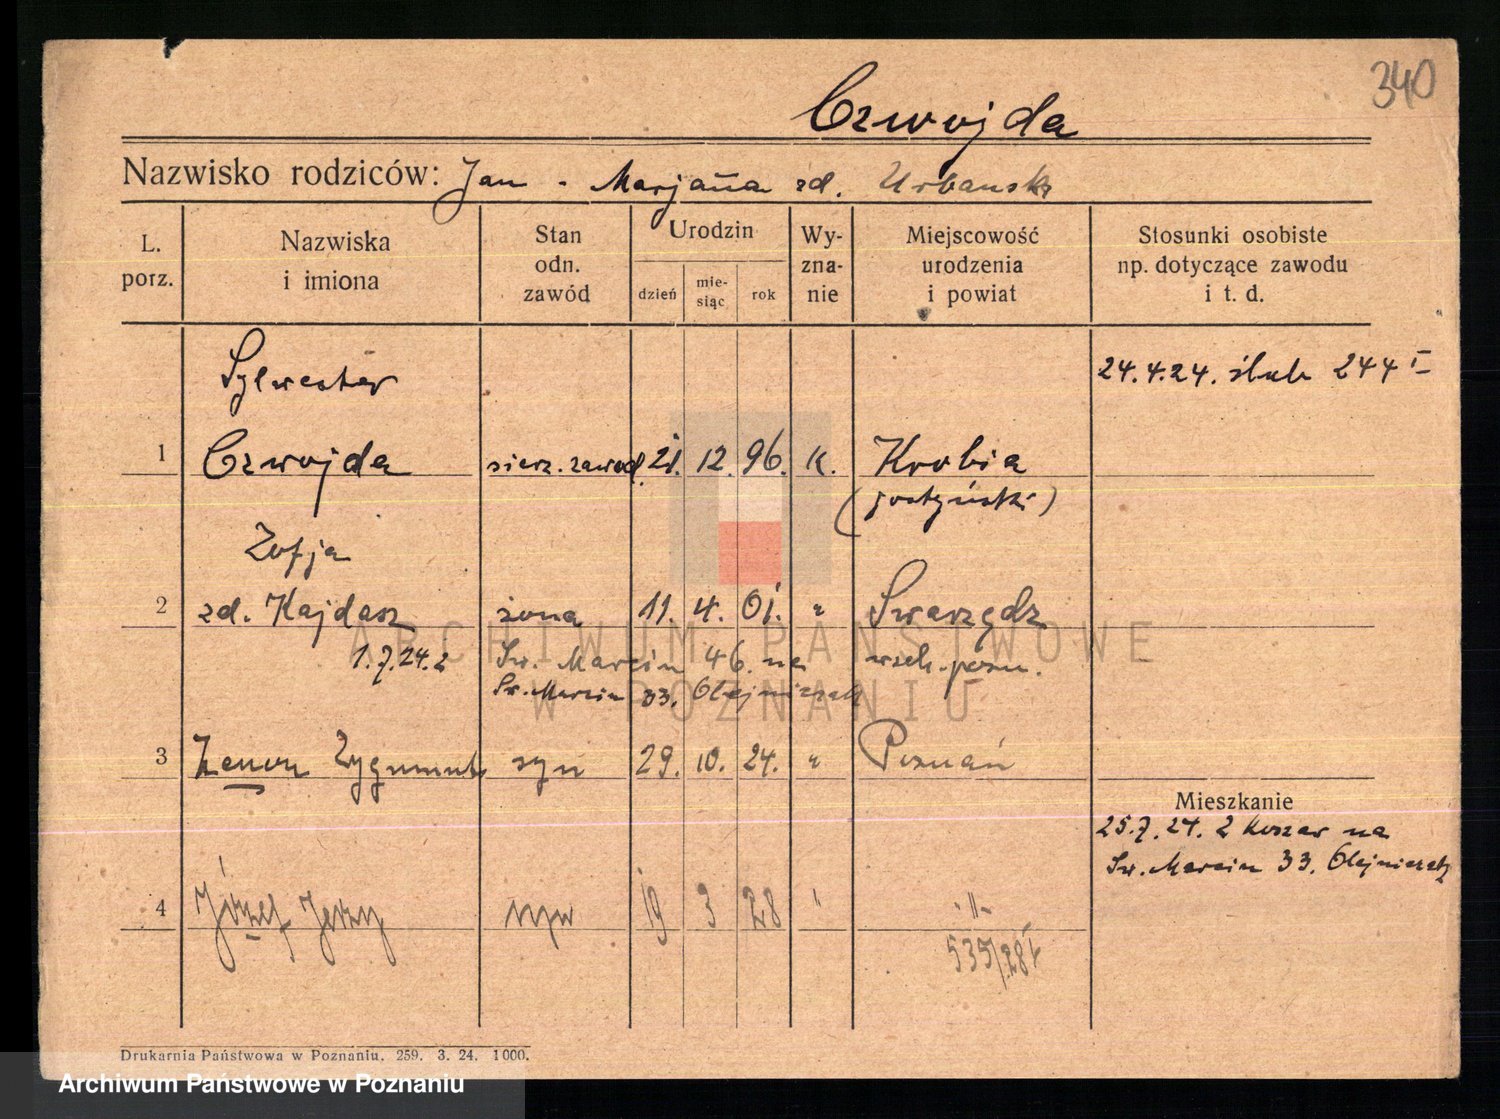 340
Czwojda
Nazwisko rodziców: Jan - Marjanna zd. Urbańsk
L. porz.
Nazwiska i imiona
Stan odn. zawód
Urodzin
dzień
mie-siąc
rok
Wy-zna-nie
Miejscowość urodzenia i powiat
Stosunki osobiste np. dotyczące zawodu i t. d.
Sylwester
24.4.24. ślub 244 I
1 Czwojda sierz. zawod. 21. 12. 96. K. Krobia
(gostyński)
Zofja
2 zd. Kajdasz żona 11. 4. 01. " Swarzędz
1.7.24.2 Św. Marcin 46. na wsch. pozn.
Św. Marcin 33. Olejniczak
3 Zenon Zygmunt syn 29. 10. 24. " Poznań
Mieszkanie
25.7.24. z Koszar na
Św. Marcin 33. Olejniczak
4 Józef Jerzy syn 19 3 28 " -"-
535/28
ARCHIWUM PAŃSTWOWE
W POZNANIU
Drukarnia Państwowa w Poznaniu. 259. 3. 24. 1000.
Archiwum Państwowe w Poznaniu